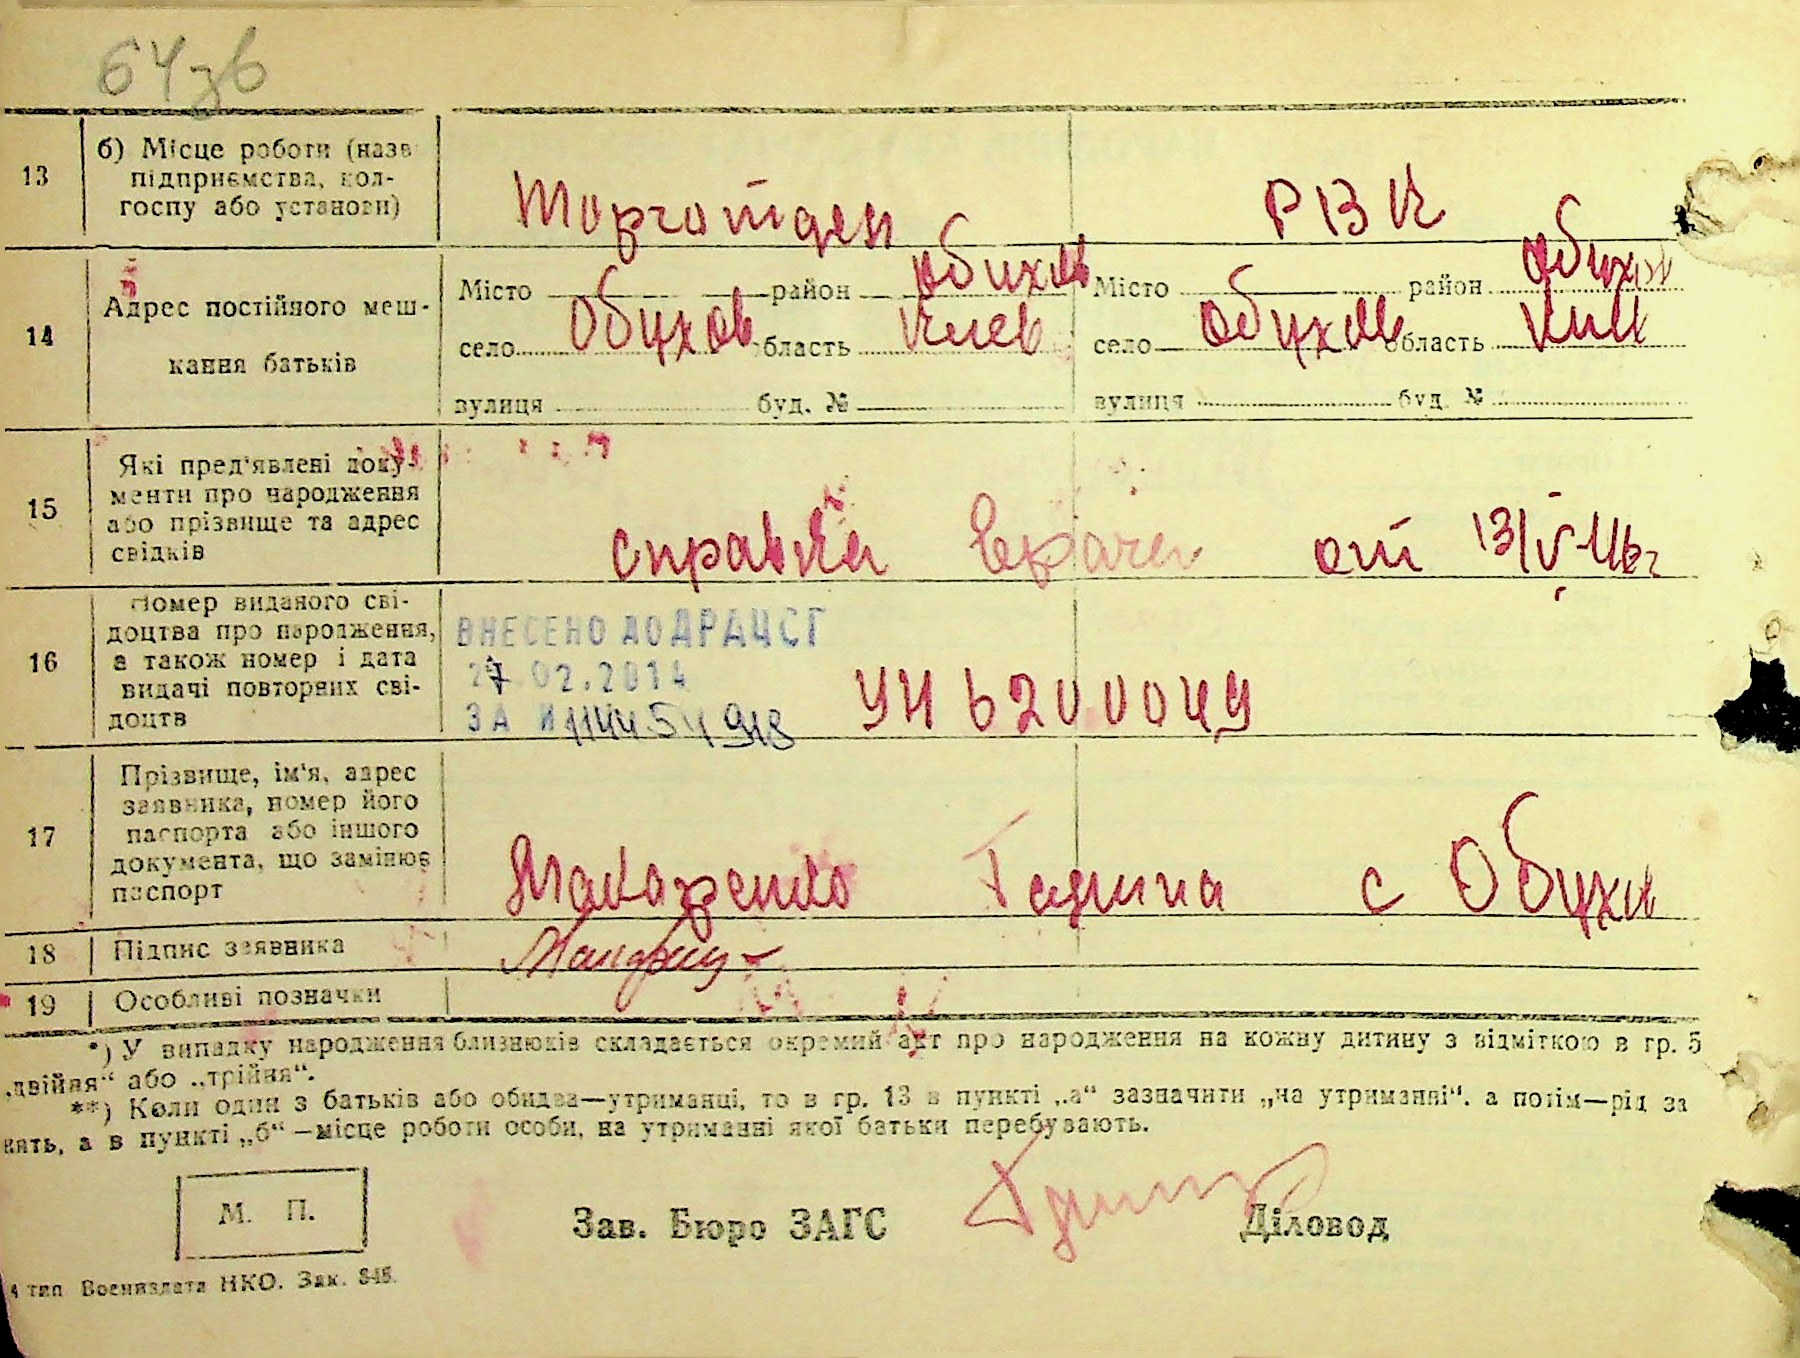 64зв
13 б) Місце роботи (назв підприємства, колгоспу або установи) Торготдел РВК
14 Адрес постійного мешкання батьків
Місто район Обухов Місто район Обухов
село Обухов область Киев село Обухов область Киев
вулиця буд. № вулиця буд. №
15 Які пред'явлені документи про народження або прізвище та адрес свідків справка врача от 13/V-46г
16 Номер виданого свідоцтва про народження, а також номер і дата видачі повторних свідоцтв
ВНЕСЕНО ДО ДРАЦСГ
27 02.2014
ЗА № 114454918
УН 6200049
17 Прізвище, ім'я, адрес заявника, номер його паспорта або іншого документа, що замінює паспорт Макаренко Галина с Обухов
18 Підпис заявника
19 Особливі позначки
*) У випадку народження близнюків складається окремий акт про народження на кожну дитину з відміткою в гр. 5
„двійня“ або „трійня“.
**) Коли один з батьків або обидва—утриманці, то в гр. 13 в пункті „а“ зазначити „на утриманні“, а потім—рід за
нять, а в пункті „б“—місце роботи особи, на утриманні якої батьки перебувають.
М. П.
Зав. Бюро ЗАГС Діловод
4 тип Воениздата НКО. Зак. 845.